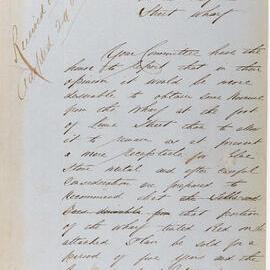 Received
Street Wharf
Your Committee have the
honor to Report that in their
opinion it would be more
desirable to obtain some Revenue
from the Wharf at the foot
of Lime Street than to allow
it to remain as at present
a mere Receptacle for
Stone metal and after careful
Consideration are prepared to
Recommend that the
portion
of the wharf tinted Red on the
attached Plan be sold for a
period of five years and the